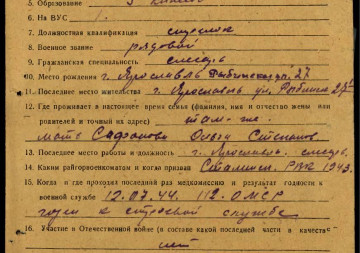 5. Образование 5 классов
6. На ВУС 1.
7. Должностная квалификация стрелок
8. Военное звание рядовой
9. Гражданская специальность слесарь
10. Место рождения г. Ярославль Рыбинская ул. 27
11. Последнее место жительства г. Ярославль ул. Рыбинск 27
12. Где проживает в настоящее время семья (фамилия, имя и отчество жены или
родителей и точный их адрес) там-же.
мать Сафонова
13. Последнее место работы и должность г. Ярославль, слесарь.
14. Каким райгорвоенкоматом и когда призван Сталинск. РВК 1943.
15. Когда и где проходил последний раз медкомиссию и результат годности к
военной службе 12.07.44. 112. ОМСР
годен к строевой службе
16. Участие в Отечественной войне (в составе какой последней части и в качестве
нет